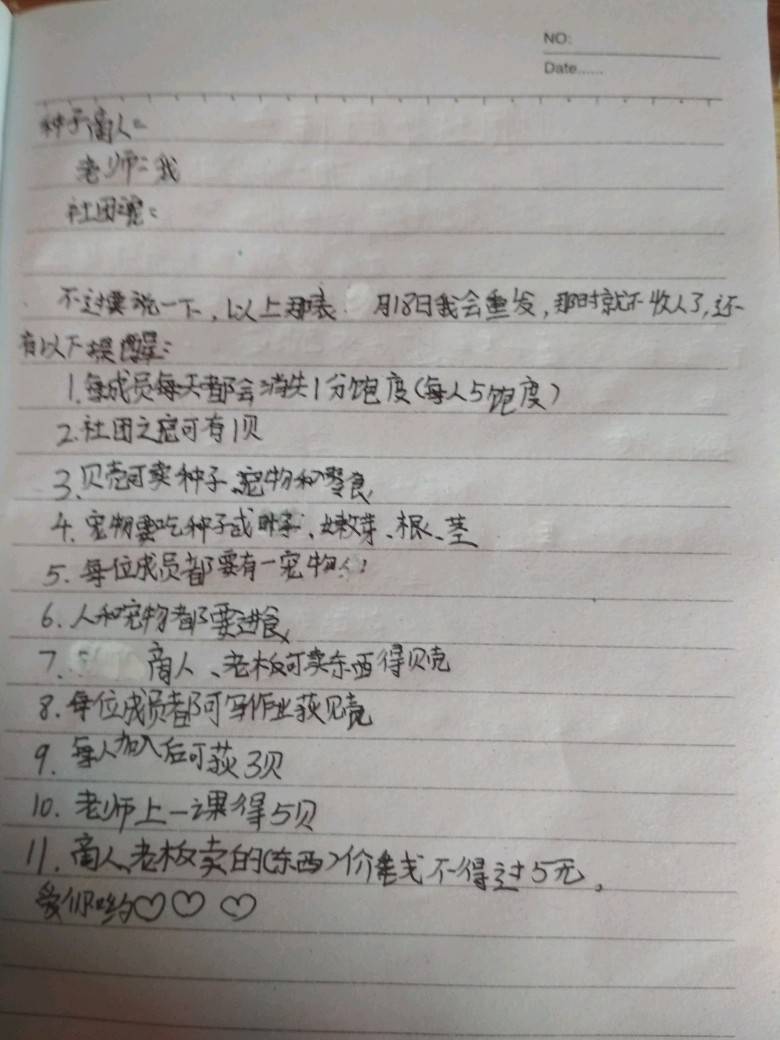 NO:
Date......
种子商人:
老师:我
社团宠:
不过要说一下,以上那表 月18日我会重发,那时就不收人了,还
有以下提醒:
1.每成员每天都会消失1分饱度(每人5饱度)
2.社团之宠可有1贝
3.贝壳可卖种子、宠物和零食
4.宠物要吃种子或叶子、嫩芽、根、茎
5.每位成员都要有一宠物
6.人和宠物都要进食
7. 商人、老板可卖东西得贝壳
8.每位成员都可写作业获贝壳
9.每人加入后可获3贝
10.老师上一课得5贝
11.商人、老板卖的(东西)价钱不得过5元。
爱你哟♡♡♡